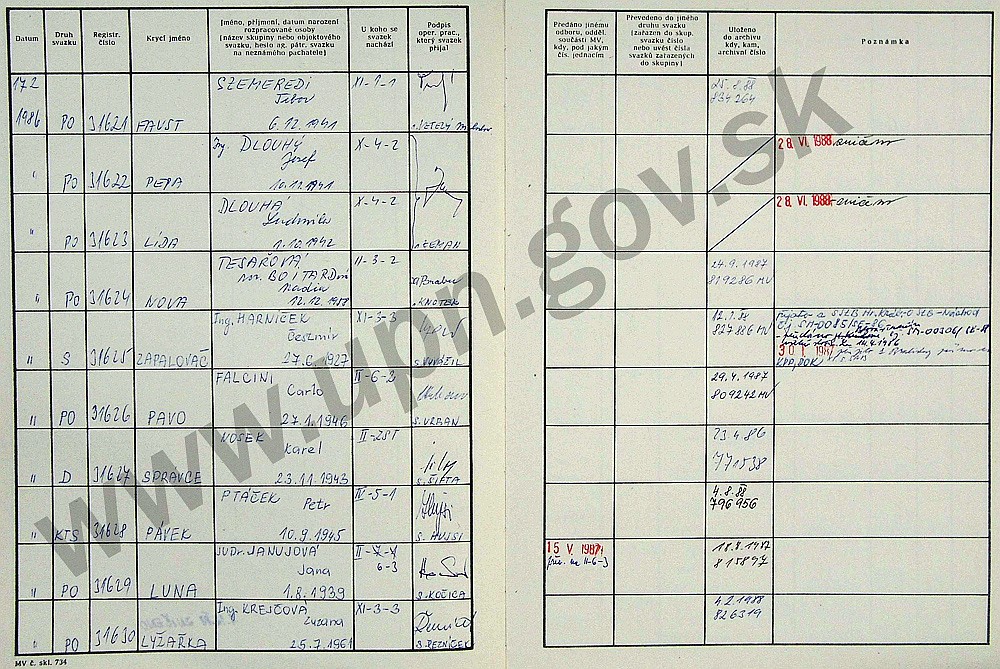 Datum
Druh svazku
Registr. číslo
Krycí jméno
Jméno, příjmení, datum narození rozpracované osoby
[název skupiny nebo objektového svazku, heslo ag. pátr. svazku na neznámého pachatele]
U koho se svazek nachází
Podpis oper. prac., který svazek přijal
Předáno jinému odboru, odděl. součásti MV, kdy, pod jakým čís. jednacím
Převedeno do jiného druhu svazku [zařazen do skup. svazku číslo nebo uvést čísla svazků zařazených do skupiny]
Uloženo do archivu kdy, kam, archivní číslo
Poznámka
17.2 SZEMEREDI XI-1-1 25.8.88
Tibor 834264
1986 PO 31621 FAUST 6.12.1941
Ing. DLOUHÝ X-4-2 28. VI. 1988
Josef
" PO 31622 PEPA 10.12.1941
DLOUHÁ X-4-2 28. VI. 1988
Ludmila
" PO 31623 LÍDA 1.10.1942 ZEMAN
TESAŘOVÁ II-3-2 24.9.1987
roz. BOITARD 819286 MV
Nadia
" PO 31624 NOVA 12.12.1958 KNOTEK
Ing. HARNÍČEK XI-3-3
Čestmír 827886 MV
" S 31625 ZAPALOVAČ 27.6.1927
30. I. 1987
FALCINI II-6-2 29.4.1987
Carlo 809242 MV
" PO 31626 PAVO 27.1.1946 S. URBAN
NOSEK II-ZST 23.4.86
Karel 771538
" D 31627 SPRÁVCE 23.11.1943 S. ŠIFTA
PTÁČEK IV-5-1 4.8.88
Petr 796956
" KTS 31628 PÁVEK 10.9.1945 S. HUSSI
JUDr. JANUJOVÁ II-7-4 15 V. 1987 18.8.1987
Jana 6-3 na II-6-3 815897
" PO 31629 LUNA 1.8.1939 S. KOČICA
Ing. KREJČOVÁ XI-3-3 4.2.1988
Zuzana 826319
" PO 31630 LYŽAŘKA 25.7.1961 S. ŘEZNÍČEK
MV č. skl. 734
www.upn.gov.sk